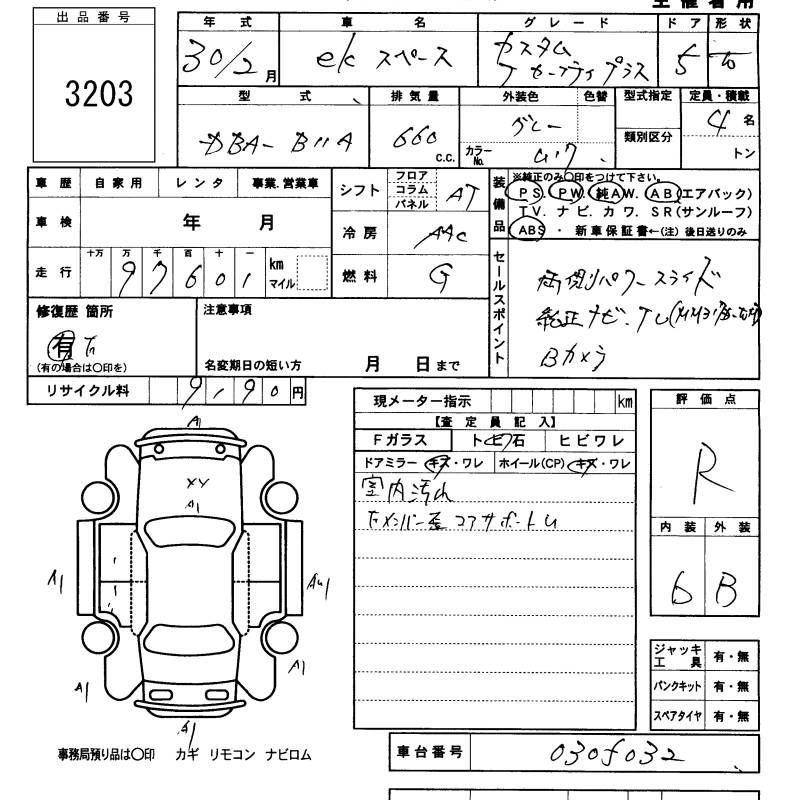 出品番号
3203
年式 車名 グレード ドア 形状
30/2月 ek スペース カスタム 5
セーフティプラス
型式 排気量 外装色 色替 型式指定 定員・積載
DBA- B11A 660 c.c. グレー 類別区分 4名
カラーNo. U17 トン
車歴 自家用 レンタ 事業.営業車
シフト フロア コラム パネル AT
装備品 ※純正のみ○印をつけて下さい。
PS. PW. 純AW. AB(エアバック)
TV. ナビ. カワ. SR(サンルーフ)
ABS ・ 新車保証書←(注) 後日送りのみ
車検 年 月
冷房 AAC
走行 十万 万 千 百 十 一
97601 km マイル
燃料 G
セールスポイント
両側パワースライド
純正ナビ.TV
Bカメラ
修復歴 箇所
有
(有の場合は○印を)
注意事項
名変期日の短い方 月 日まで
リサイクル料 9,190円
現メーター指示 km
【査定員記入】
Fガラス トビ石 ヒビワレ
ドアミラー キズ・ワレ ホイール(CP) キズ・ワレ
室内汚れ
コアサポート
評価点
R
内装 外装
6 B
A1
XY
A1
A1
A1
A1
A1
ジャッキ工具 有・無
パンクキット 有・無
スペアタイヤ 有・無
事務局預り品は○印 カギ リモコン ナビロム
車台番号 0305032